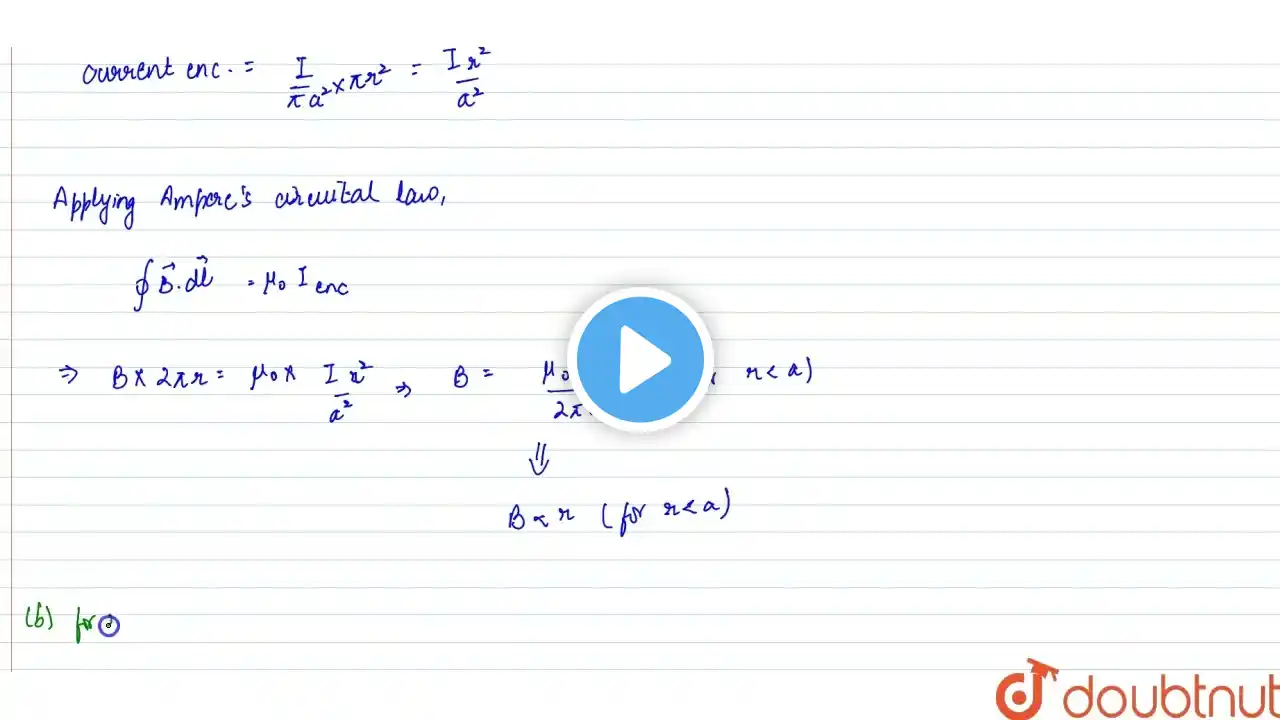 current enc. = I/πa² × πr² = Ir²/a²
Applying Ampere's circuital law,
∮B⃗.dl⃗ = μ₀ I enc
⇒ B × 2πr = μ₀ × Ir²/a² ⇒ B = μ₀ /2π r < a)
⇓
B ∝ r (for r < a)
(b) for
doubtnut